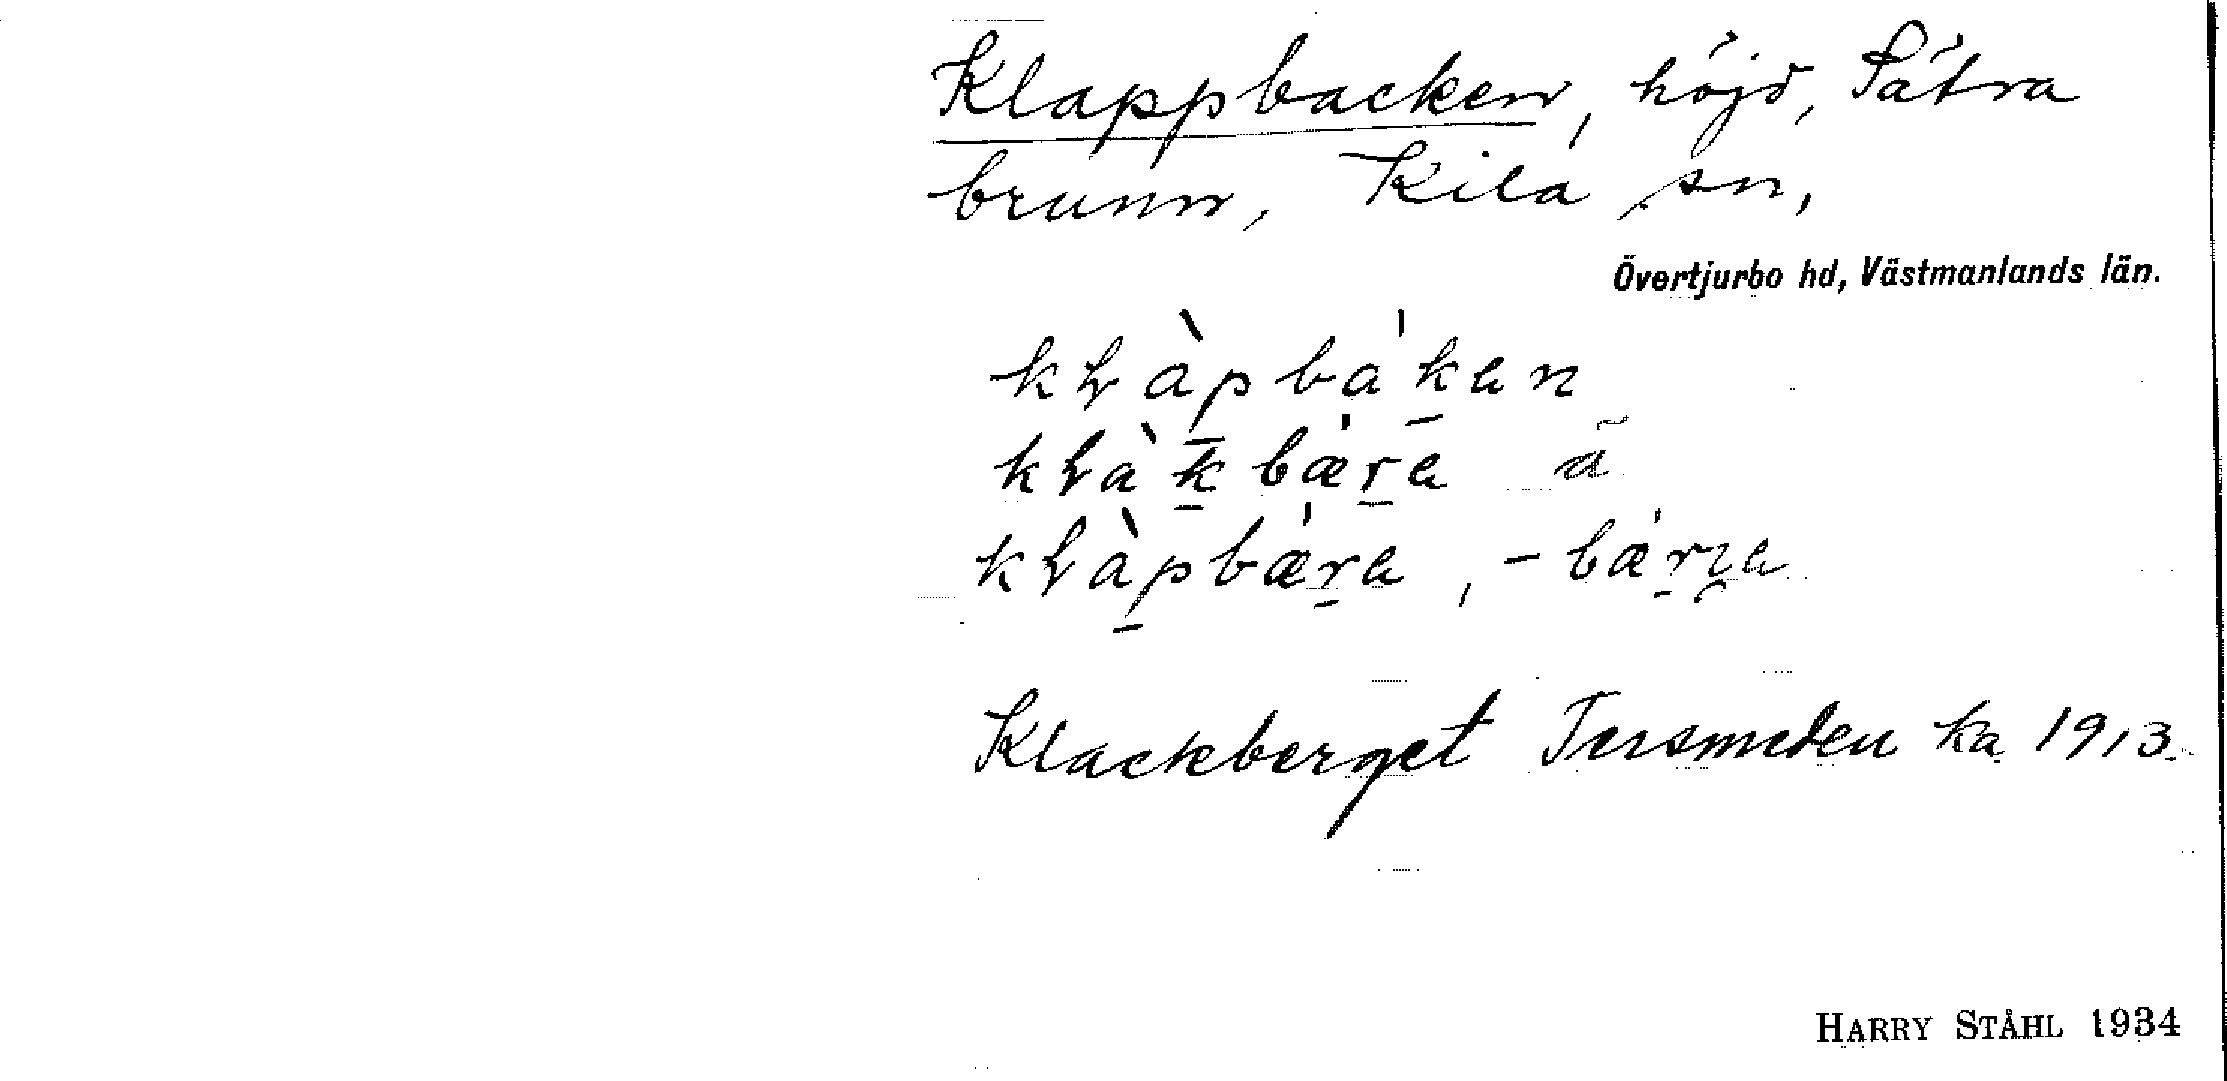 Klappbacken, höjd, Sätra
brunn, Kila sn,
Övertjurbo hd, Västmanlands län.
kɽàpbákan
kɽàkbæ̀ra ä
kɽàpbæ̀ra, -bærja
Klackberget Tersmeden ka 1913.
HARRY STÅHL 1934